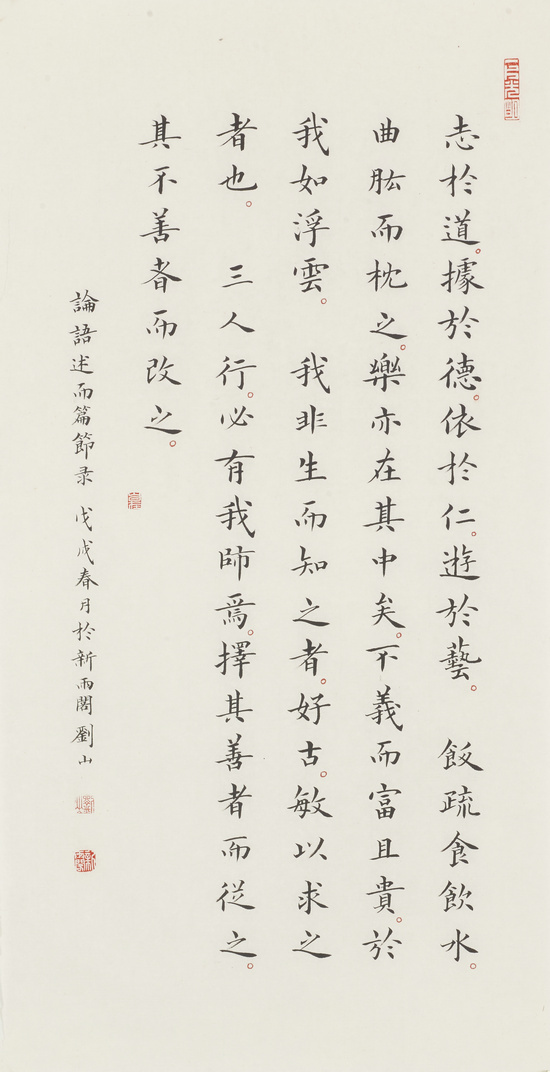 志於道。據於德。依於仁。遊於藝。 飯疏食飲水。
曲肱而枕之。樂亦在其中矣。不義而富且貴。於
我如浮雲。 我非生而知之者。好古。敏以求之
者也。 三人行。必有我師焉。擇其善者而從之。
其不善者而改之。
論語述而篇節录 戊戌春月於新雨閣劉山